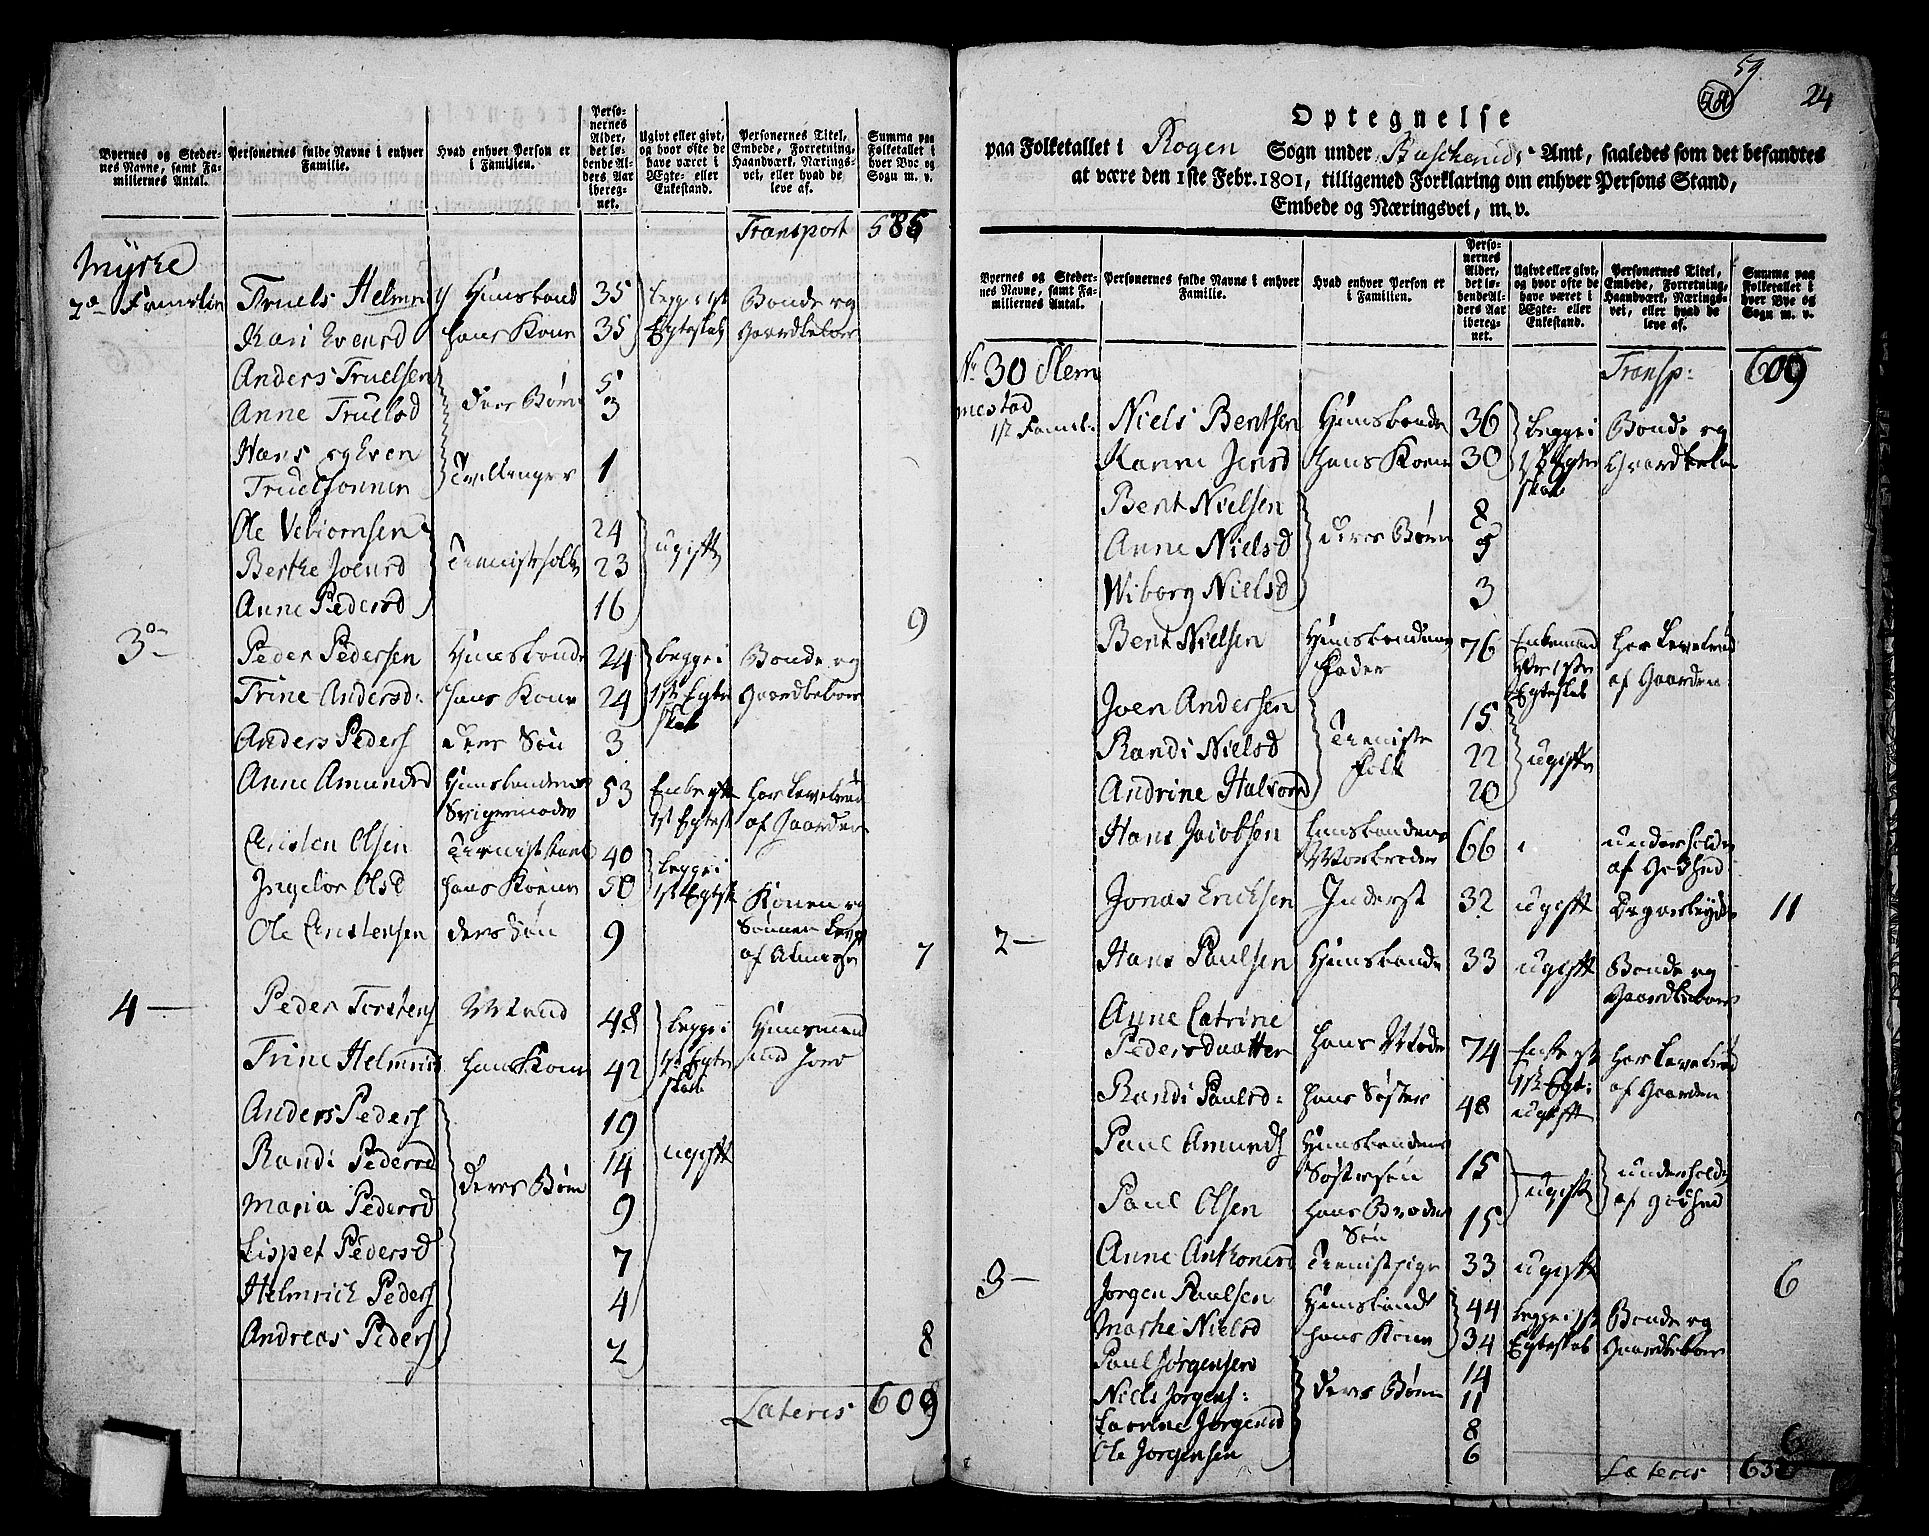 Byernes og Stedernes Navne, samt Familiernes Antal.
Personernes fulde Navne i enhver Familie.
Hvad enhver Person er i Familien.
Personernes Alder, det løbende Alders Aar iberegnet.
Ugivt eller givt, og hvor ofte de have været i Ægte- eller Enkestand.
Personernes Titel, Embede, Forretning, Haandværk, Næringsvei, eller hvad de leve af.
Summa paa Folketallet i hver Bye og Sogn m. v.
Transport 585
Myrke
2de Familie Truels Helmri Huusbond 35 begge i 1st Bonde og
Kari Evensd hans Kone 35 Egteskab Gaardbeboer
Anders Truelsen 5
Anne Truelsd deres Børn 3
Hans og Even
Truelsønner Tvillinger 1
Ole Vebiornsen 24
Berthe Joensd Tienistefolk 23 ugift
Anne Pedersd 16 9
3 Peder Pedersen Huusbonde 24 begge i Bonde og
Trine Andersd: hans Kone 24 1st Egte Gaardbeboer
skab
Anders Peders deres Søn 3
Anne Amundsd Huusbondens 53 Enke efter har Levebrød
Svigermoder 1st Egtesk af Gaarden
Christen Olsen Tienistekarl 40 begge i
Ingebor Olsd hans Kone 50 1st Egtesk Konen og
Ole Christensen deres Søn 9 Sønnen leve
af Almisse 7
4 Peder Torstens Mand 48 begge i Huusmand
Trine Helmrids hans Kone 42 1st Egte med Jord
skab
Anders Peders 19
Randi Pedersd 14 ugift
Maria Pedersd deres Børn 9
Lispet Pedersd 7
Helmrich Peders 4
Andreas Peders 2 8
Lateris 609
59
24
Optegnelse
paa Folketallet i Rogen Sogn under Buscheruds Amt, saaledes som det befandtes
at være den 1ste Febr. 1801, tilligemed Forklaring om enhver Persons Stand,
Embede og Næringsvei, m. v.
Byernes og Stedernes Navne, samt Familiernes Antal.
Personernes fulde Navne i enhver Familie.
Hvad enhver Person er i Familien.
Personernes Alder, det løbende Alders Aar iberegnet.
Ugivt eller givt, og hvor ofte de have været i Ægte- eller Enkestand.
Personernes Titel, Embede, Forretning, Haandværk, Næringsvei, eller hvad de leve af.
Summa paa Folketallet i hver Bye og Sogn m. v.
No 30 Slem Transp: 609
mestad
1st Famil: Niels Bentsen Huusbonde 36 begge i Bonde og
Karine Jensd hans Kone 30 1st Egte Gaardbeboer
skab
Bent Nielsen 8
Anne Nielsd deres Børn 5
Wiborg Nielsd 3
Bent Nielsen Huusbondens 76 Enkemand har Levebrød
Fader efter 1ste af Gaarden
Egteskab
Joen Andersen 15
Randi Nielsd Tieniste 22 ugifte
Andrine Halvorsd Folk 20
Hans Jacobsen Huusbondens 66 underholdes
Morbroder af Godhed
Jonas Erichsen Inderst 32 ugift 11
2 Hans Paulsen Huusbonde 33 ugift Bonde og
Gaardbeboer
Anne Catrine
Pedersdaatter hans Moder 74 Enke efter har Levebrød
1st Egt: af Gaarden
Randi Paulsd: hans Søster 48 ugift
Paul Amunds Huusbondens 15 underholdes
Søstersøn
Paul Olsen hans Broder 15 ugift af Godhed
Søn
Anne Anthonisd Tienistpige 33 ugift 6
3 Jørgen Paulsen Huusbonde 44 begge i 1st Bonde og
Marthe Nielsd hans Kone 34 Egteskab Gaardbeboer
Paul Jørgensen 14
Niels Jørgens: deres Børn 11
Jørgensd 8
Ole Jorgensen 6 6
Lateris